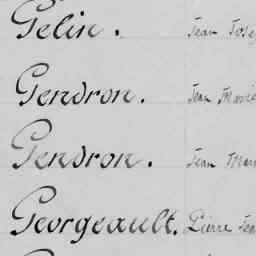 Gelin. Jean Jose
Gendron. Jean Marie
Gendron. Jean Mar
Georgeault. Pierre Jea